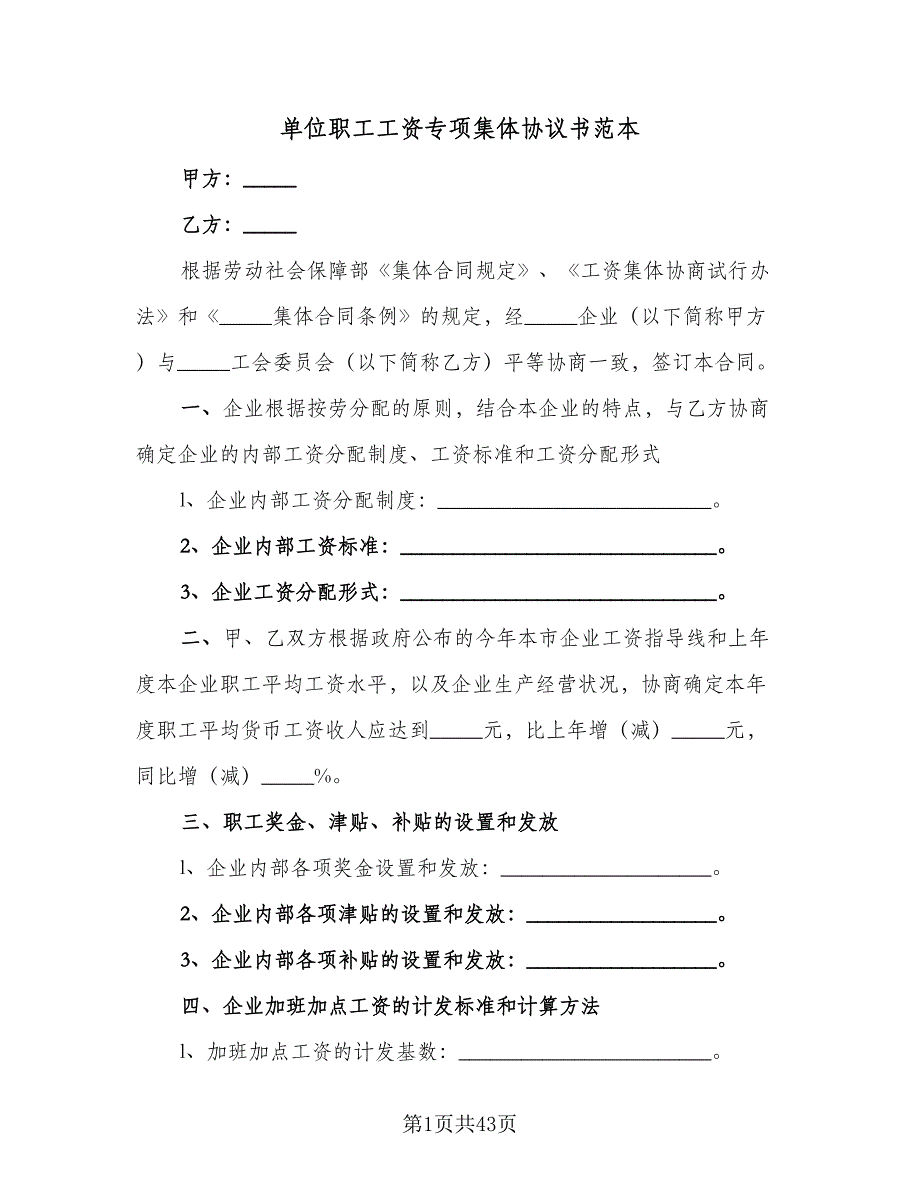 单位职工工资专项集体协议书范本
甲方：_____
乙方：_____
根据劳动社会保障部《集体合同规定》、《工资集体协商试行办
法》和《_____集体合同条例》的规定，经_____企业（以下简称甲方
）与_____工会委员会（以下简称乙方）平等协商一致，签订本合同。
一、企业根据按劳分配的原则，结合本企业的特点，与乙方协商
确定企业的内部工资分配制度、工资标准和工资分配形式
l、企业内部工资分配制度：__________________________。
2、企业内部工资标准：______________________________。
3、企业工资分配形式：______________________________。
二、甲、乙双方根据政府公布的今年本市企业工资指导线和上年
度本企业职工平均工资水平，以及企业生产经营状况，协商确定本年
度职工平均货币工资收人应达到_____元，比上年增（减）_____元，
同比增（减）_____%。
三、职工奖金、津贴、补贴的设置和发放
l、企业内部各项奖金设置和发放：____________________。
2、企业内部各项津贴的设置和发放：__________________。
3、企业内部各项补贴的设置和发放：__________________。
四、企业加班加点工资的计发标准和计算方法
l、加班加点工资的计发基数：________________________。
第1页共43页